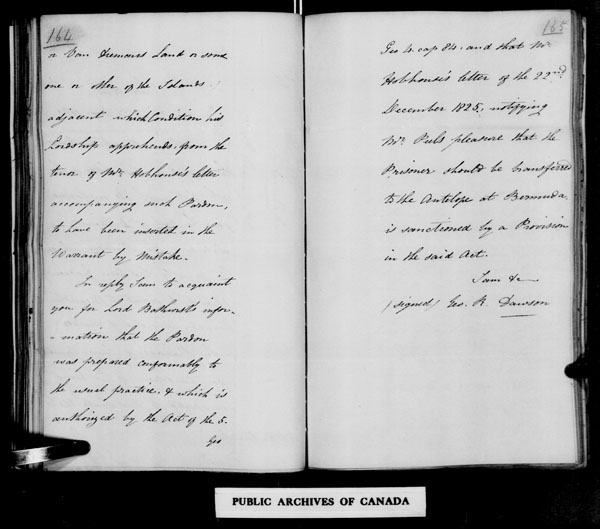 164
or Van Diemens Land or some
one or other of the Islands
adjacent which Condition his
Lordship apprehends, from the
tenor of Mr. Hobhouse's letter
accompanying such Pardon,
to have been inserted in the
Warrant by Mistake.
In reply I am to acquaint
you for Lord Bathurst's infor-
-mation that the Pardon
was prepared conformably to
the usual practice, & which is
authorized by the Act of the 5.
Geo
165
Geo 4. cap 84. and that Mr.
Hobhouse's letter of the 22nd.
December 1825, notifying
Mr. Peels pleasure that the
Prisoner should be transferred
to the Antelope at Bermuda,
is sanctioned by a Provision
in the said Act.
I am &c
(signed) Geo. R. Dawson
PUBLIC ARCHIVES OF CANADA